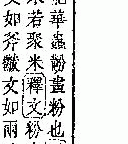 華蟲黺畫粉也
米若聚米釋文粉
文如斧黻文如兩